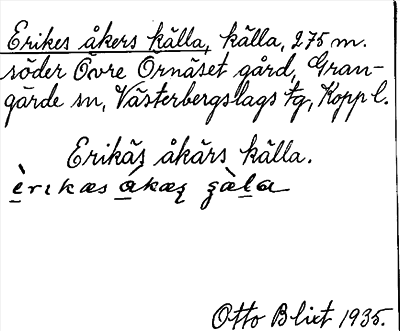 Erikes åkers källa, källa, 275 m.
söder Övre Örnäset gård, Gran-
gärde sn, Västerbergslags tg, Kopp l.
Erikäs åkärs källa.
èrıkæs ákæʂ ʂàla
Otto Blixt 1935.